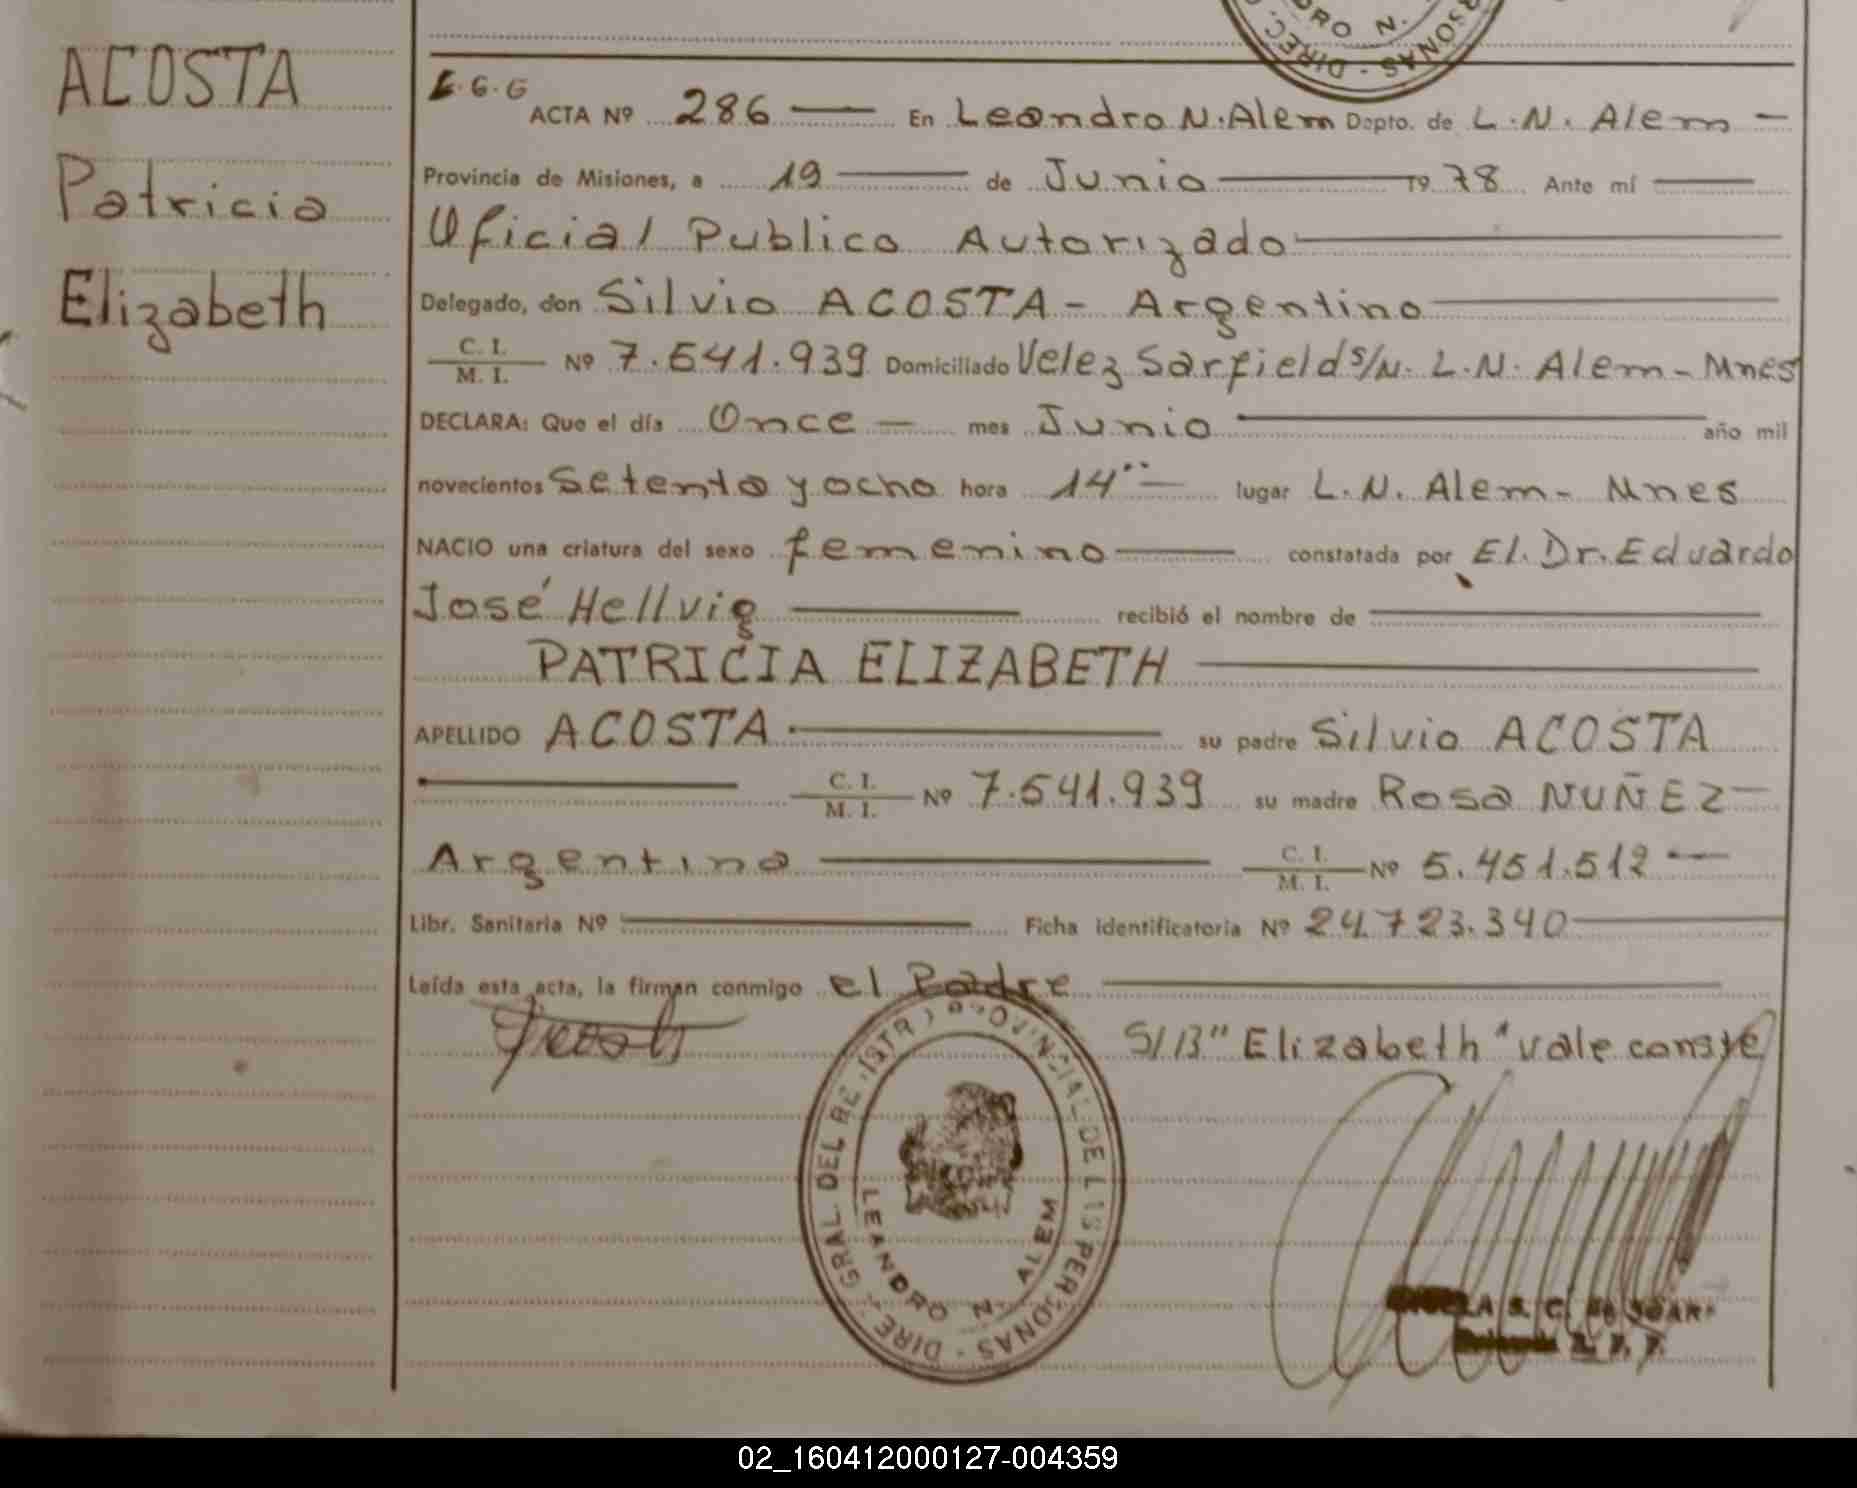 DRO N.
DIREC. PERSONAS
ACOSTA
Patricia
Elizabeth
E.G.G
ACTA Nº 286 En Leandro N. Alem Dpto. de L.N. Alem
Provincia de Misiones, a 19 de Junio 1978 Ante mí
Oficial Publico Autorizado
Delegado, don Silvio ACOSTA - Argentino
C. I. / M. I. Nº 7.541.939 Domiciliado Velez Sarfield s/N. L.N. Alem - Mnes
DECLARA: Que el día Once mes Junio año mil
novecientos Setenta y ocho hora 14 lugar L.N. Alem - Mnes
NACIO una criatura del sexo femenino constatada por El. Dr. Eduardo
José Hellvig recibió el nombre de
PATRICIA ELIZABETH
APELLIDO ACOSTA su padre Silvio ACOSTA
C. I. / M. I. Nº 7.541.939 su madre Rosa NUÑEZ
Argentina C. I. / M. I. Nº 5.451.512
Libr. Sanitaria Nº Ficha identificatoria Nº 24.723.340
Leída esta acta, la firman conmigo el Padre
S/B "Elizabeth" vale conste
DIRE. GRAL. DEL REGISTR PROVINCIAL DE L S PERSONAS
LEANDRO N. ALEM
02_160412000127-004359